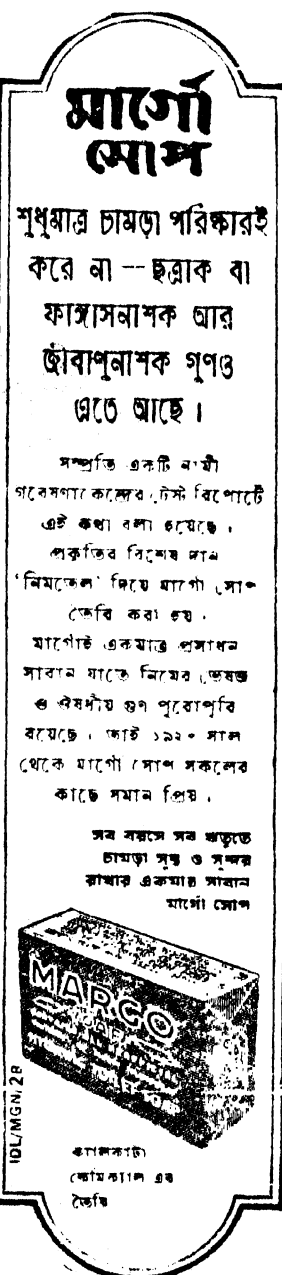 মার্গো
সোপ
শুধুমাত্র চামড়া পরিষ্কারই
করে না -- ছত্রাক বা
ফাঙ্গাসনাশক আর
জীবাণুনাশক গুণও
এতে আছে ।
সম্প্রতি একটি নামী
গবেষণা কেন্দ্রের টেস্ট রিপোর্টে
এই কথা বলা হয়েছে ।
প্রকৃতির বিশেষ দান
'নিমতেল' দিয়ে মার্গো সোপ
তৈরি করা হয় ।
মার্গোই একমাত্র প্রসাধন
সাবান যাতে নিমের ভেষজ
ও ঔষধীয় গুণ পুরোপুরি
রয়েছে । তাই ১৯২০ সাল
থেকে মার্গো সোপ সকলের
কাছে সমান প্রিয় ।
সব বয়সে সব ঋতুতে
চামড়া সুস্থ ও সুন্দর
রাখার একমাত্র সাবান
মার্গো সোপ
MARGO
SOAP
IDL/MGN, 2B
ক্যালকাটা
কেমিক্যাল এর
তৈরি